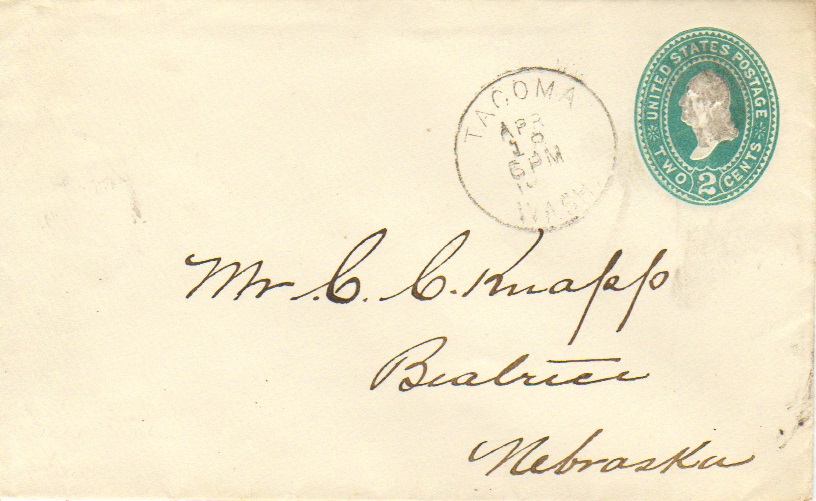 UNITED STATES POSTAGE
TWO 2 CENTS
TACOMA
APR
PM
WASH
Mr C. C. Knapp
Beatrice
Nebraska